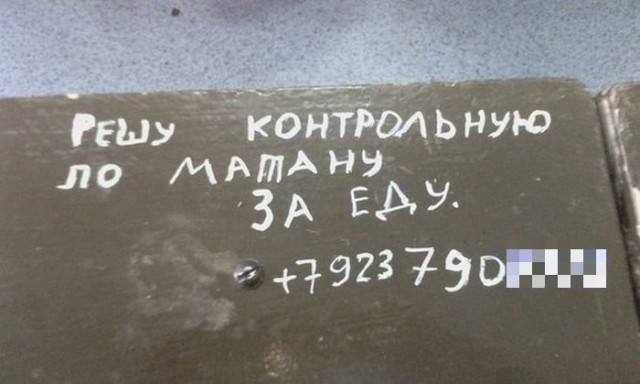 РЕШУ КОНТРОЛЬНУЮ
ПО МАТАНУ
ЗА ЕДУ.
+7923790